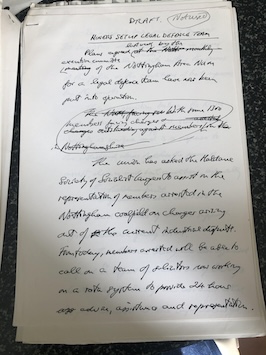 DRAFT.
MINERS SET UP LEGAL DEFENCE TEAM
Plans agreed at the monthly
executive committee
meeting of the Nottingham Area NUM
for a legal defence team have now been
put into operation.
The
With some 1300
members facing charges
charges outstanding against members in the
Nottinghamshire
The union has asked the Haldane
Society of Socialist Lawyers to assist in the
representation of members arrested in the
Nottingham coalfield on charges arising
out of the current industrial dispute.
From today, members arrested will be able to
call on a team of solicitors now working
on a rota system to provide 24 hour
advice, assistance and representation.